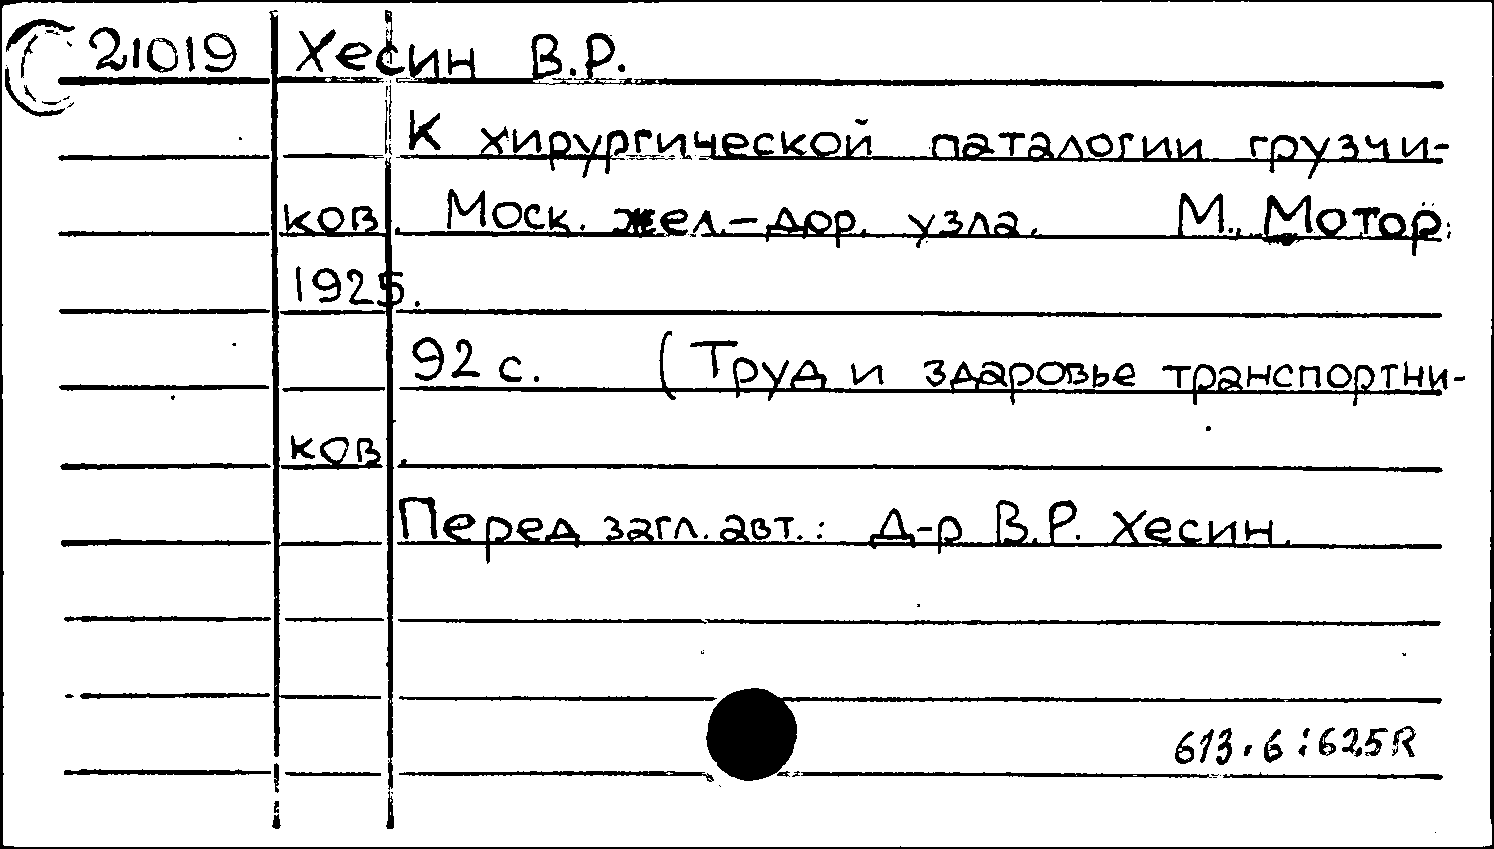 21019 Хесин В.Р.
К хирургической паталогии грузчи-
ков. Моск. жел.-дор. узла. М., Мотор.
1925.
92 с. (Труд и здаровье транспортни-
ков.
Перед загл. авт.: Д-р В.Р. Хесин.
613.6:625R